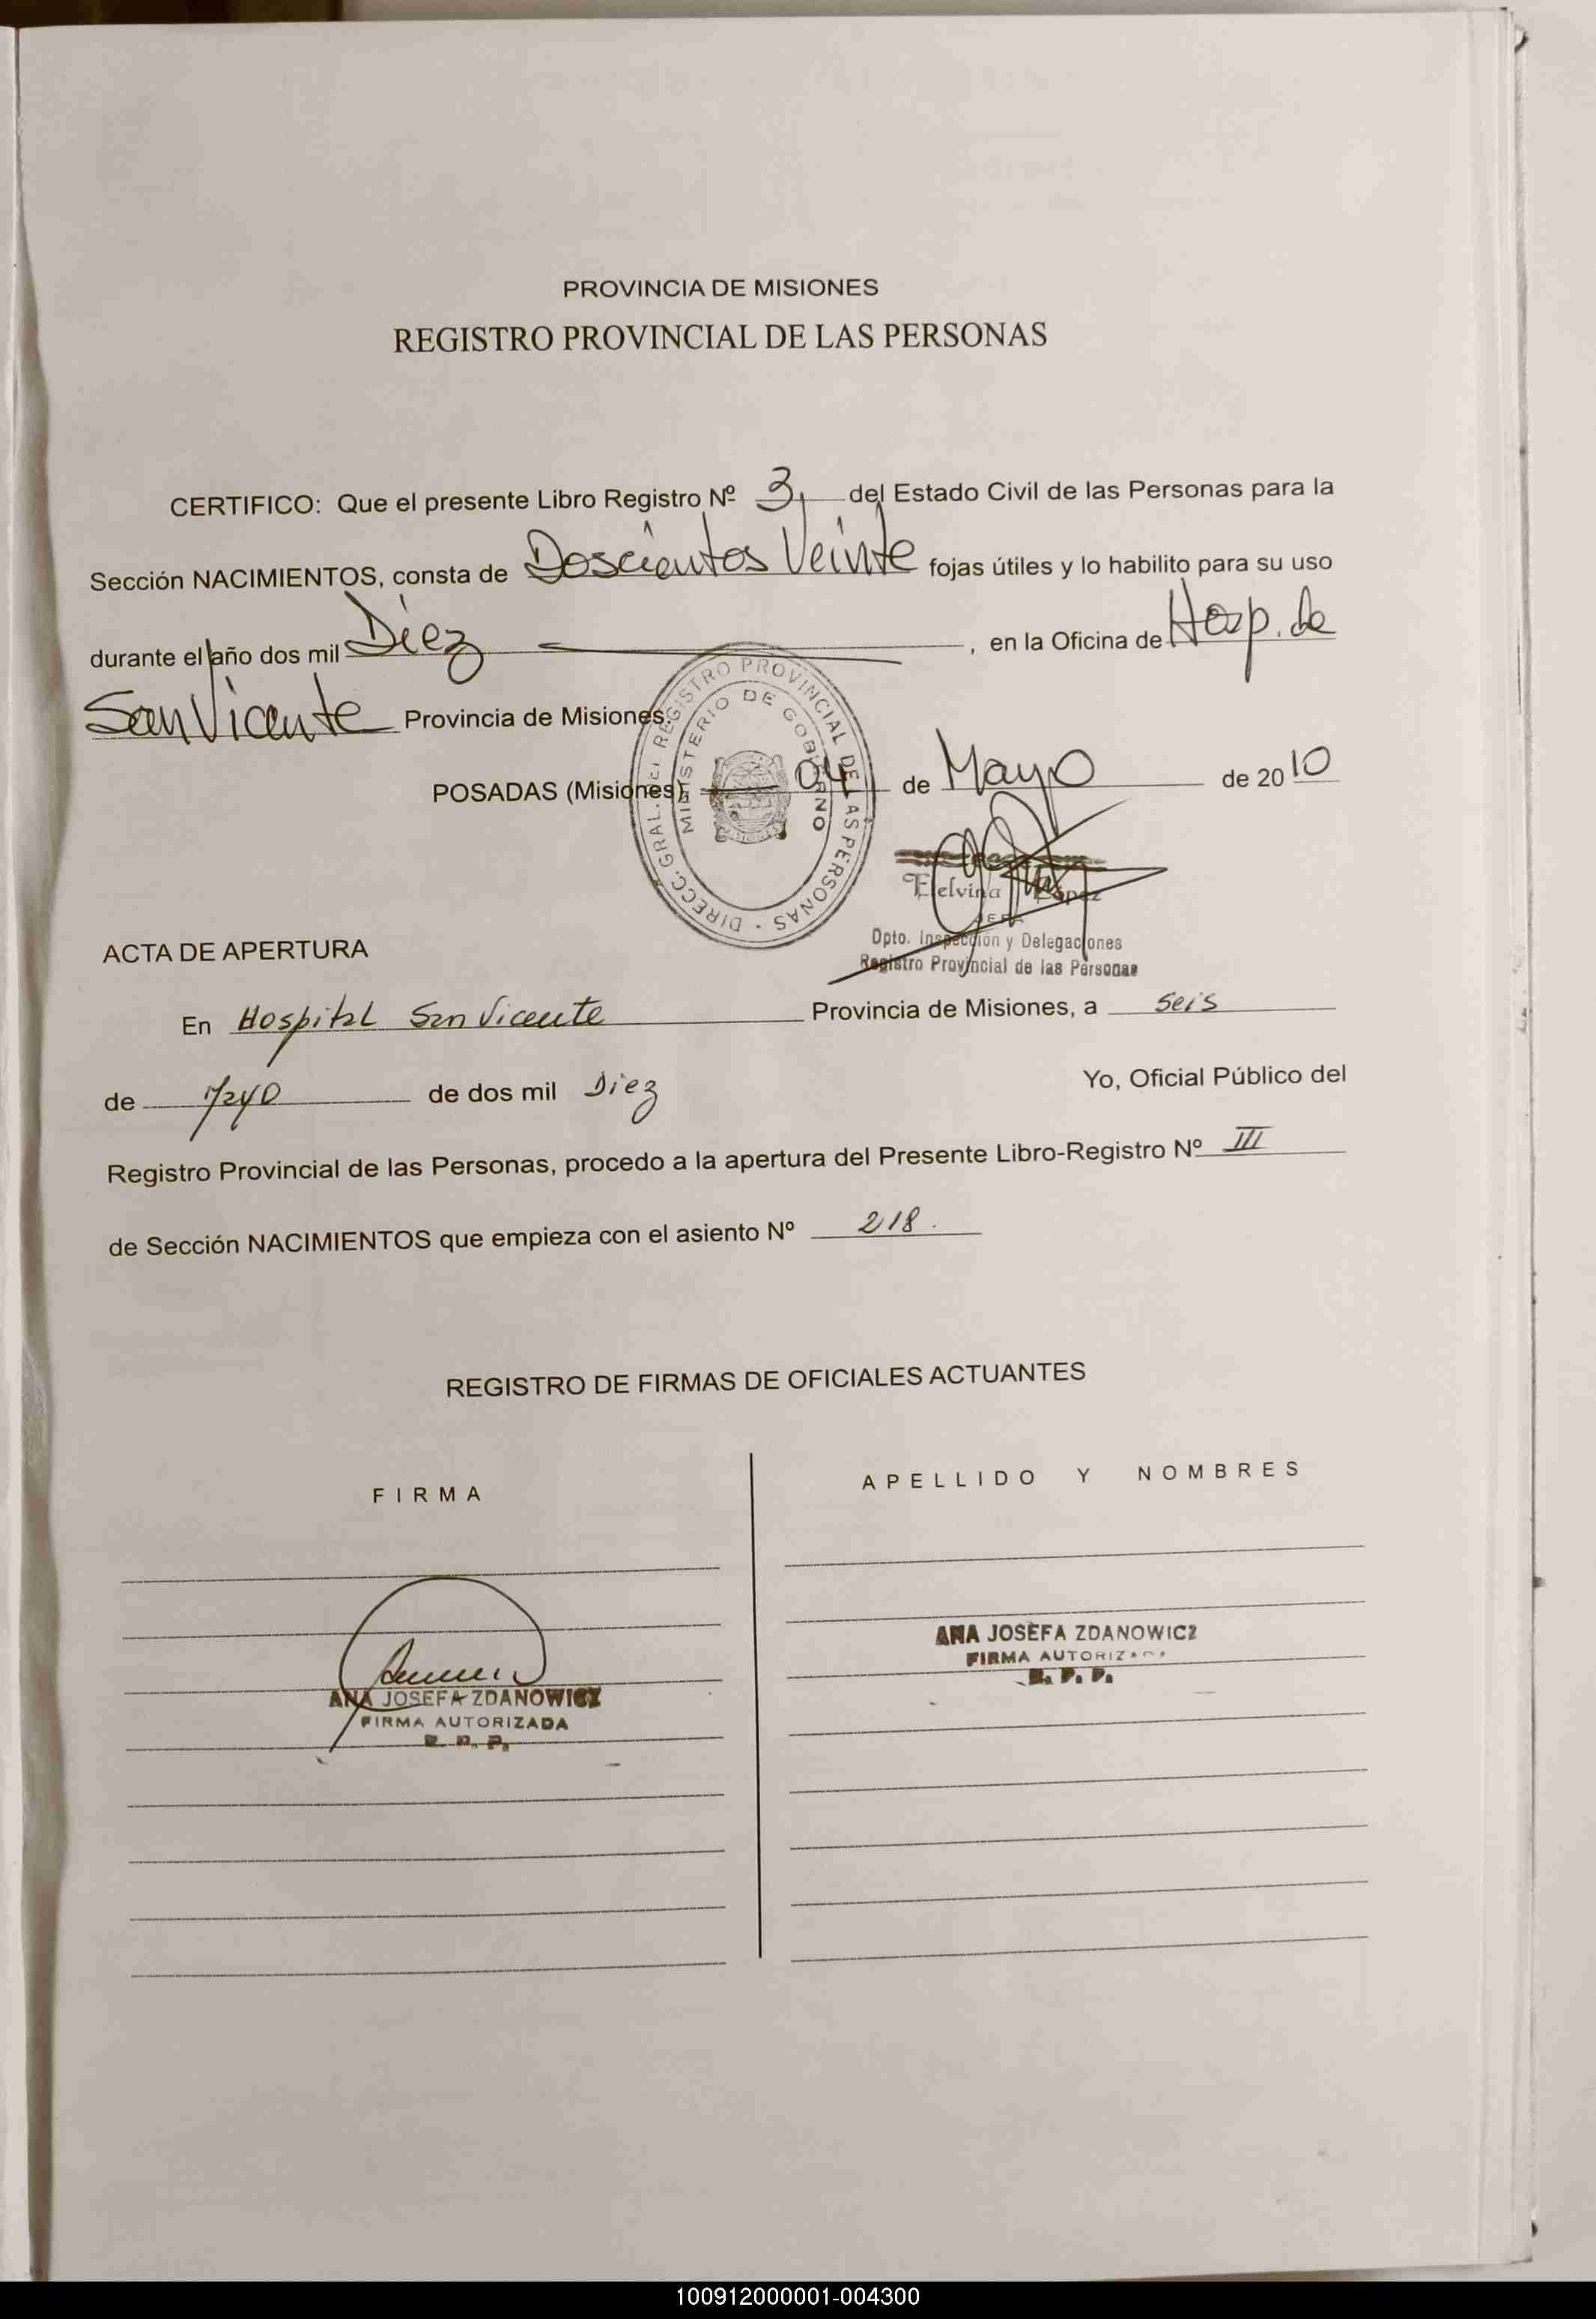 PROVINCIA DE MISIONES
REGISTRO PROVINCIAL DE LAS PERSONAS
CERTIFICO: Que el presente Libro Registro Nº 3, del Estado Civil de las Personas para la
Sección NACIMIENTOS, consta de Doscientos Veinte fojas útiles y lo habilito para su uso
durante el año dos mil Diez , en la Oficina de Hosp. de
San Vicente Provincia de Misiones.
POSADAS (Misiones), 04 de Mayo de 2010
DIRECC. GRAL. REGISTRO PROVINCIAL DE LAS PERSONAS
MINISTERIO DE GOBIERNO
Elelvina López
JEFA
Opto. Inspección y Delegaciones
Registro Provincial de las Personas
ACTA DE APERTURA
En Hospital San Vicente Provincia de Misiones, a seis
de Mayo de dos mil Diez Yo, Oficial Público del
Registro Provincial de las Personas, procedo a la apertura del Presente Libro-Registro Nº III
de Sección NACIMIENTOS que empieza con el asiento Nº 218.
REGISTRO DE FIRMAS DE OFICIALES ACTUANTES
FIRMA
APELLIDO Y NOMBRES
ANA JOSEFA ZDANOWICZ
FIRMA AUTORIZADA
R. P. P.
ANA JOSEFA ZDANOWICZ
FIRMA AUTORIZADA
R. P. P.
100912000001-004300